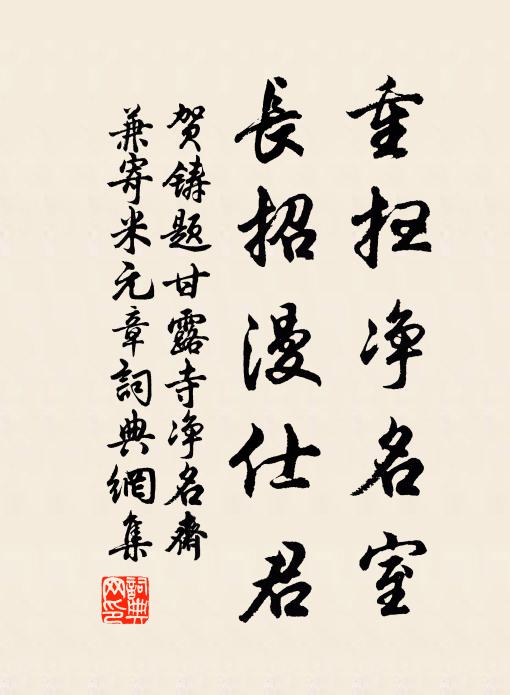 重扫净名室
長招漫仕君
贺鑄題甘露寺净名齋
兼寄米元章詞典網集